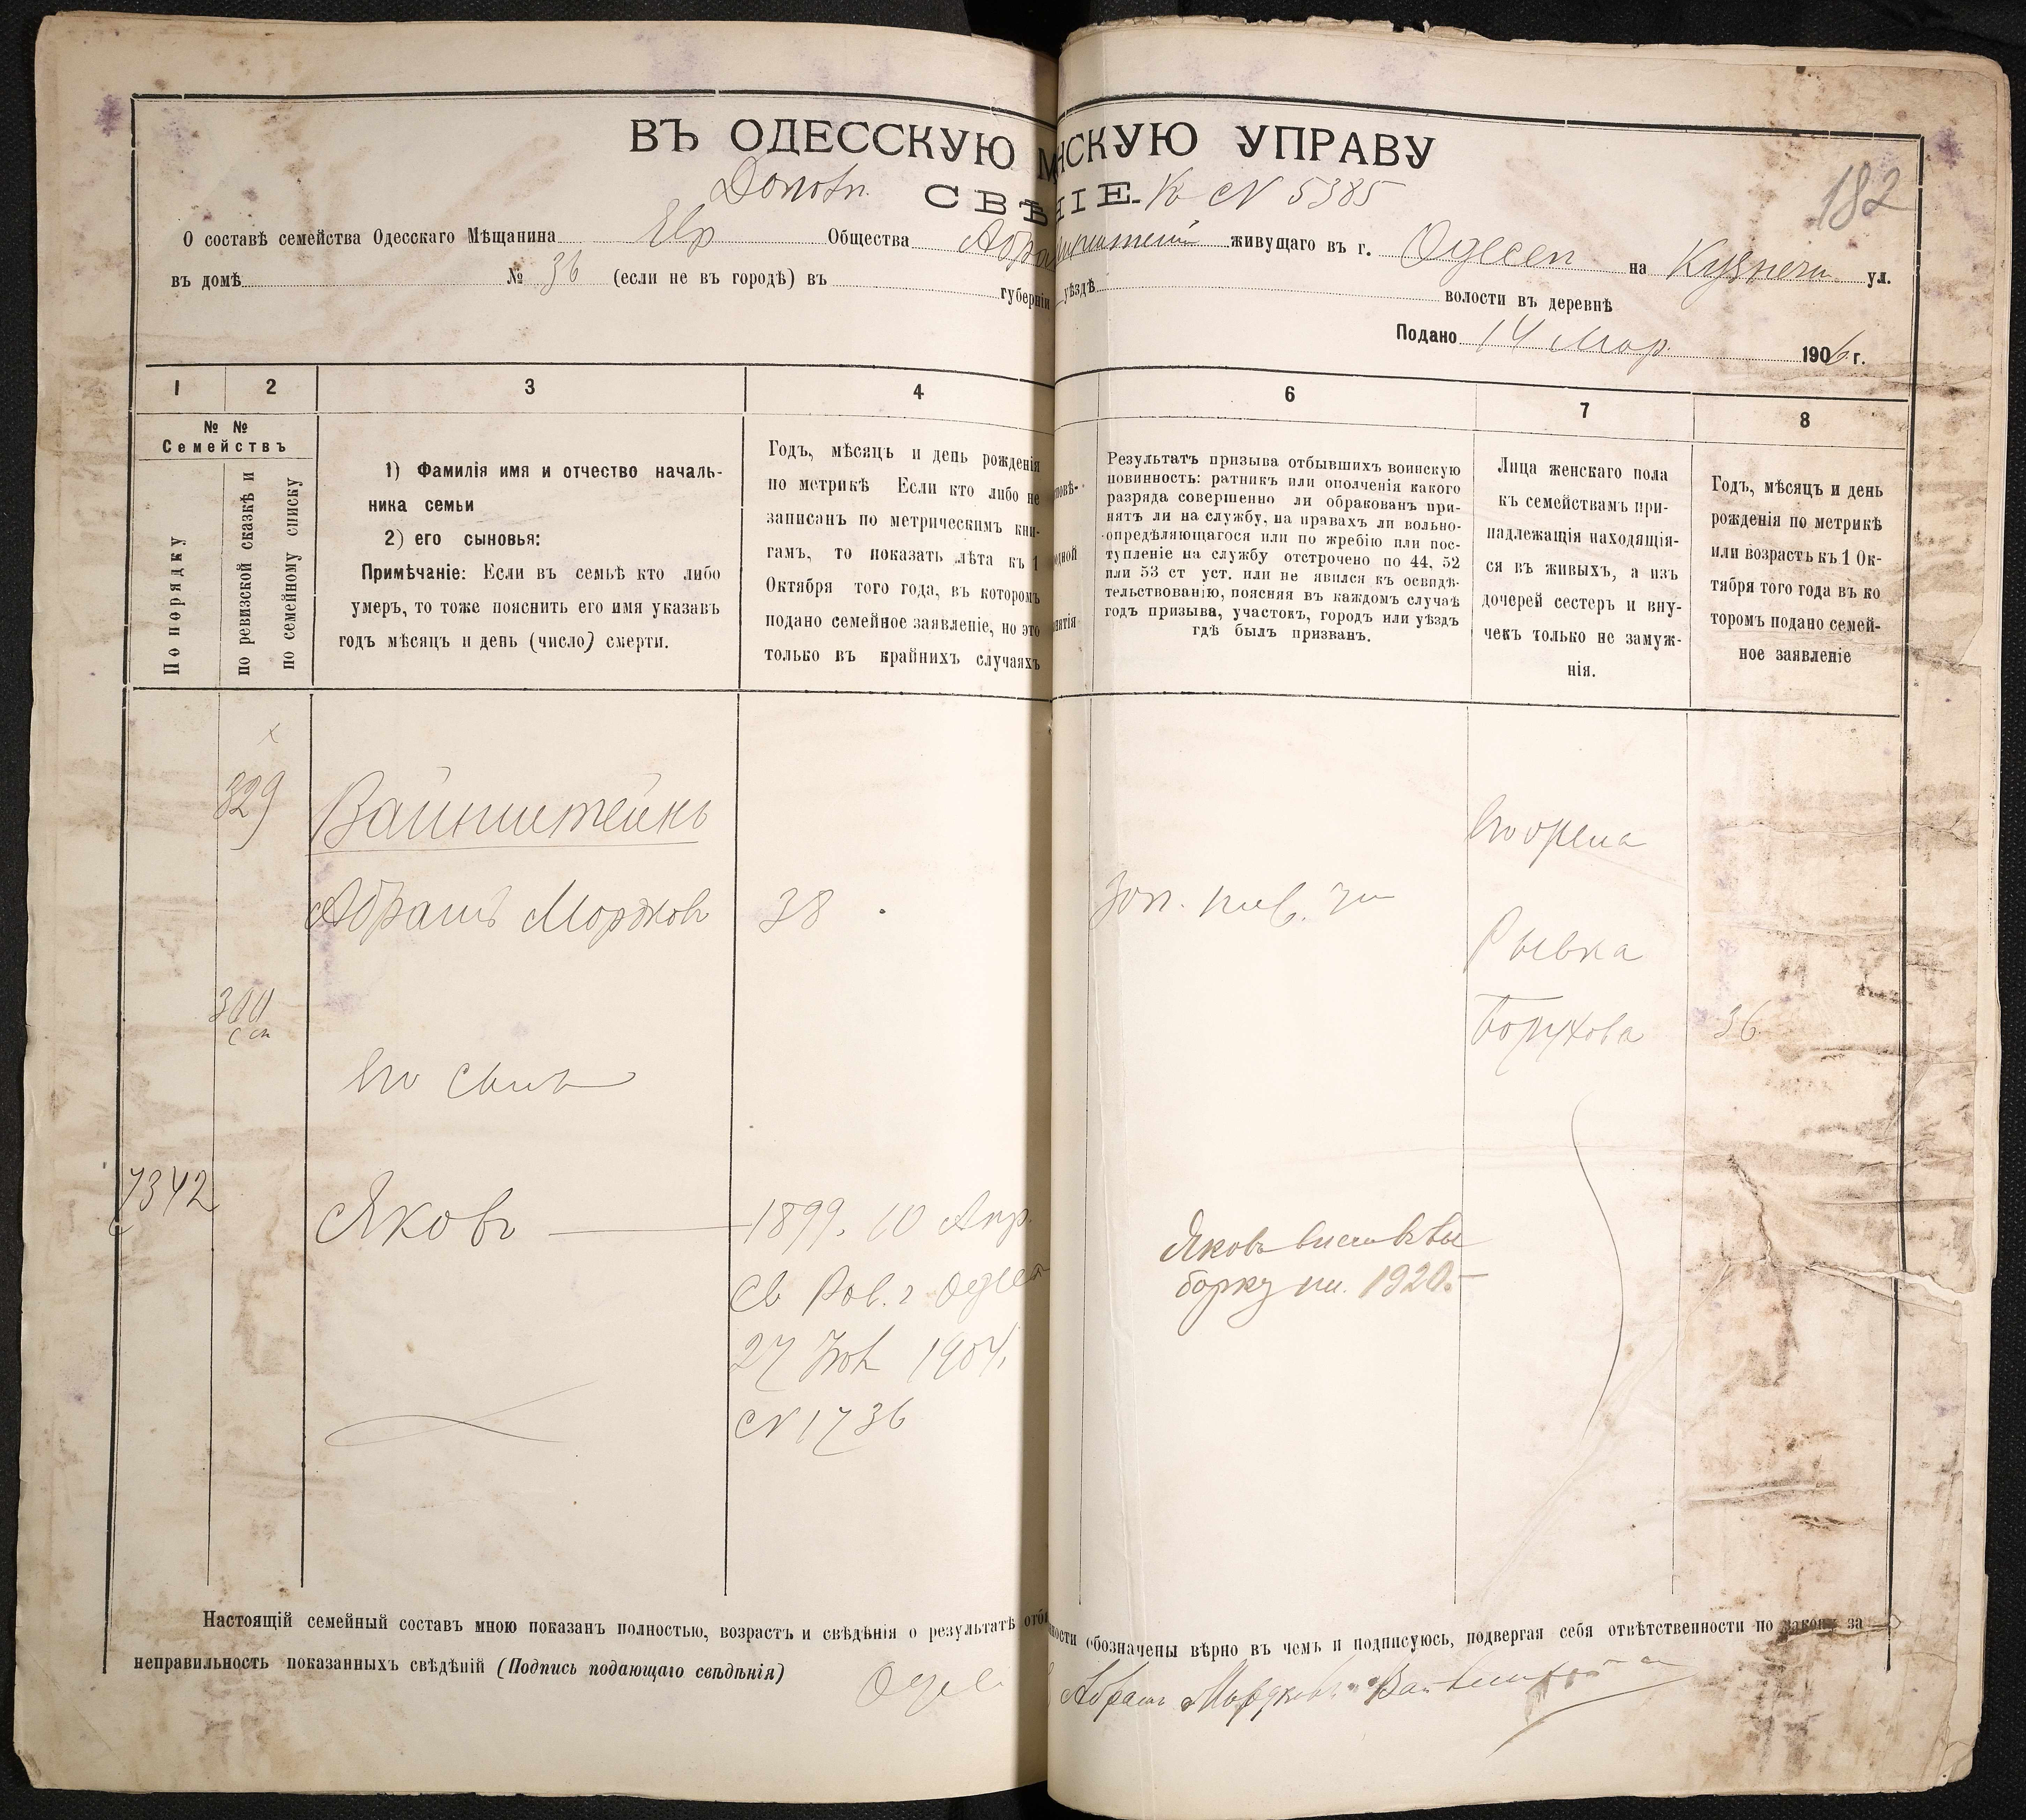 ВЪ ОДЕССКУЮ М НСКУЮ УПРАВУ
Дополн. СВѢ НІЕ. К № 5385
182
О составѣ семейства Одесскаго Мѣщанина Евр Общества живущаго въ г. Одессѣ на Кузнечн ул.
въ домѣ № 36 (если не въ городѣ) въ губерніи уѣздѣ волости въ деревнѣ
Подано 14 Мар. 1906 г.
1 2 3 4 6 7 8
№ № Семействъ
По порядку
по ревизской сказкѣ и
по семейному списку
1) Фамилія имя и отчество началь-
ника семьи
2) его сыновья:
Примѣчаніе: Если въ семьѣ кто либо
умеръ, то тоже пояснить его имя указавъ
годъ мѣсяцъ и день (число) смерти.
Годъ, мѣсяцъ и день рожденія
по метрикѣ Если кто либо не
записанъ по метрическимъ кни-
гамъ, то показать лѣта къ 1
Октября того года, въ которомъ
подано семейное заявленіе, но это
только въ крайнихъ случаяхъ
Результатъ призыва отбывшихъ воинскую
повинность: ратникъ или ополченія какого
разряда совершенно ли обракованъ при-
нятъ ли на службу, на правахъ ли вольно-
опредѣляющагося или по жребію или пос-
тупленіе на службу отстрочено по 44, 52
или 53 ст уст. или не явился къ освидѣ-
тельствованію, поясняя въ каждомъ случаѣ
годъ призыва, участокъ, городъ или уѣздъ
гдѣ былъ призванъ.
Лица женскаго пола
къ семействамъ при-
надлежащія находящія-
ся въ живыхъ, а изъ
дочерей сестеръ и вну-
чекъ только не замуж-
нія.
Годъ, мѣсяцъ и день
рожденія по метрикѣ
или возрастъ къ 1 Ок-
тября того года въ ко
торомъ подано семей-
ное заявленіе
829 Вайнштейнъ
Абрамъ Мордков 38
Рывка
Борухова 36
его сынъ
7342 Яковъ 1899. 10 Апр.
Св Рав. г Одес
27 1904.
№ 1736
Яковъ
1920.
Настоящій семейный составъ мною показанъ полностью, возрастъ и свѣдѣнія о результатѣ отбы ности обозначены вѣрно въ чемъ и подписуюсь, подвергая себя отвѣтственности по закону за
неправильность показанныхъ свѣдѣній (Подпись подающаго свѣдѣнія)
Абрам Мордков